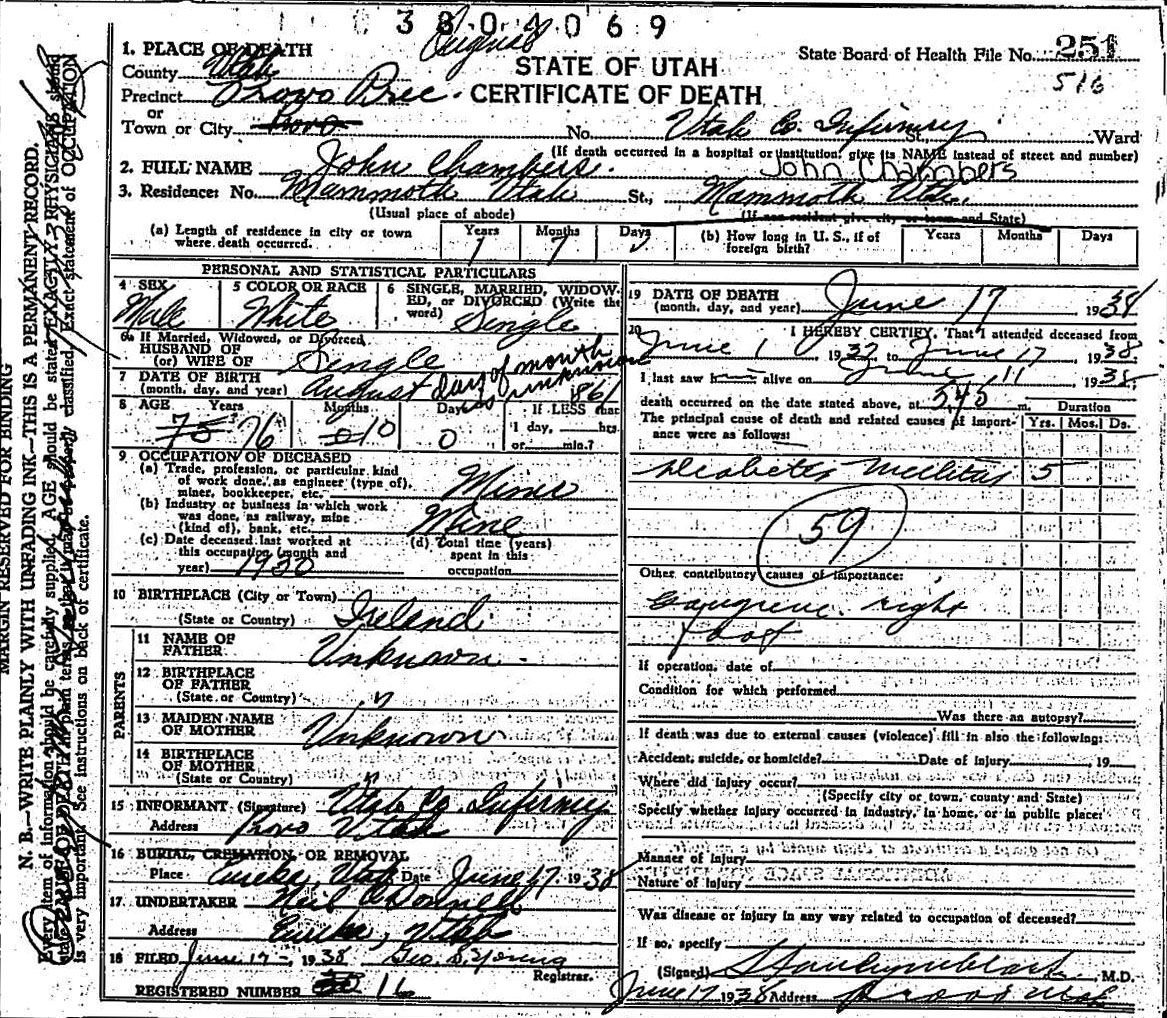 3804069
Original
1. PLACE OF DEATH
STATE OF UTAH
CERTIFICATE OF DEATH
State Board of Health File No. 251
516
County Utah
Precinct Provo Prec.
or
Town or City Provo No. Utah Co. Infirmry St. Ward
(If death occurred in a hospital or institution, give its NAME instead of street and number)
2. FULL NAME John Chambers. John Chambers
3. Residence: No. Mammoth Utah St., Mammoth Utah.
(Usual place of abode) (If non-resident give city or town and State)
(a) Length of residence in city or town where death occurred. Years 1 Months 7 Days
(b) How long in U. S., if of foreign birth? Years Months Days
PERSONAL AND STATISTICAL PARTICULARS
4 SEX Male
5 COLOR OR RACE White
6 SINGLE, MARRIED, WIDOWED, or DIVORCED (Write the word) Single
6a If Married, Widowed, or Divorced
HUSBAND OF
(or) WIFE OF Single
7 DATE OF BIRTH
(month, day, and year) August day of month is unknown 1861
8 AGE Years 75 76 Months 0 10 Days 0 If LESS than
1 day, hrs.
or min.?
9 OCCUPATION OF DECEASED
(a) Trade, profession, or particular kind
of work done, as engineer (type of),
miner, bookkeeper, etc. Miner
(b) Industry or business in which work
was done, as railway, mine
(kind of), bank, etc. Mine
(c) Date deceased last worked at
this occupation (month and
year) 1930
(d) Total time (years)
spent in this
occupation
10 BIRTHPLACE (City or Town)
(State or Country) Ireland.
PARENTS
11 NAME OF
FATHER Unknown.
12 BIRTHPLACE
OF FATHER
(State or Country) "
13 MAIDEN NAME
OF MOTHER Unknown
14 BIRTHPLACE
OF MOTHER
(State or Country) "
15 INFORMANT (Signature) Utah Co. Infirmry
Address Provo Utah
16 BURIAL, CREMATION, OR REMOVAL
Place Eureka, Utah Date June 17 1938
17 UNDERTAKER Neil O'Donnell
Address Eureka, Utah
18 FILED June 17-, 1938 Geo. S. Young
Registrar.
REGISTERED NUMBER 16
19 DATE OF DEATH
(month, day, and year) June 17 1938
20 I HEREBY CERTIFY, That I attended deceased from
June 1 1937, to June 17 1938
I last saw h alive on June 11, 1938
death occurred on the date stated above, at 5:40 m.
The principal cause of death and related causes of importance were as follows:
Duration
Yrs. Mos. Ds.
Diabetes Mellitus 5
59
Other contributory causes of importance:
Gangrene right
foot
If operation, date of
Condition for which performed
Was there an autopsy?
If death was due to external causes (violence) fill in also the following:
Accident, suicide, or homicide? Date of injury 19
Where did injury occur?
(Specify city or town, county and State)
Specify whether injury occurred in industry, in home, or in public place:
Manner of Injury
Nature of Injury
Was disease or injury in any way related to occupation of deceased?
If so, specify
(Signed) M.D.
June 17 1938 Address Provo Utah
MARGIN RESERVED FOR BINDING
N. B.—WRITE PLAINLY WITH UNFADING INK—THIS IS A PERMANENT RECORD.
Every item of information should be carefully supplied. AGE should be stated EXACTLY. PHYSICIANS should
state CAUSE OF DEATH in plain terms, so that it may be properly classified. Exact statement of OCCUPATION
is very important. See instructions on back of certificate.